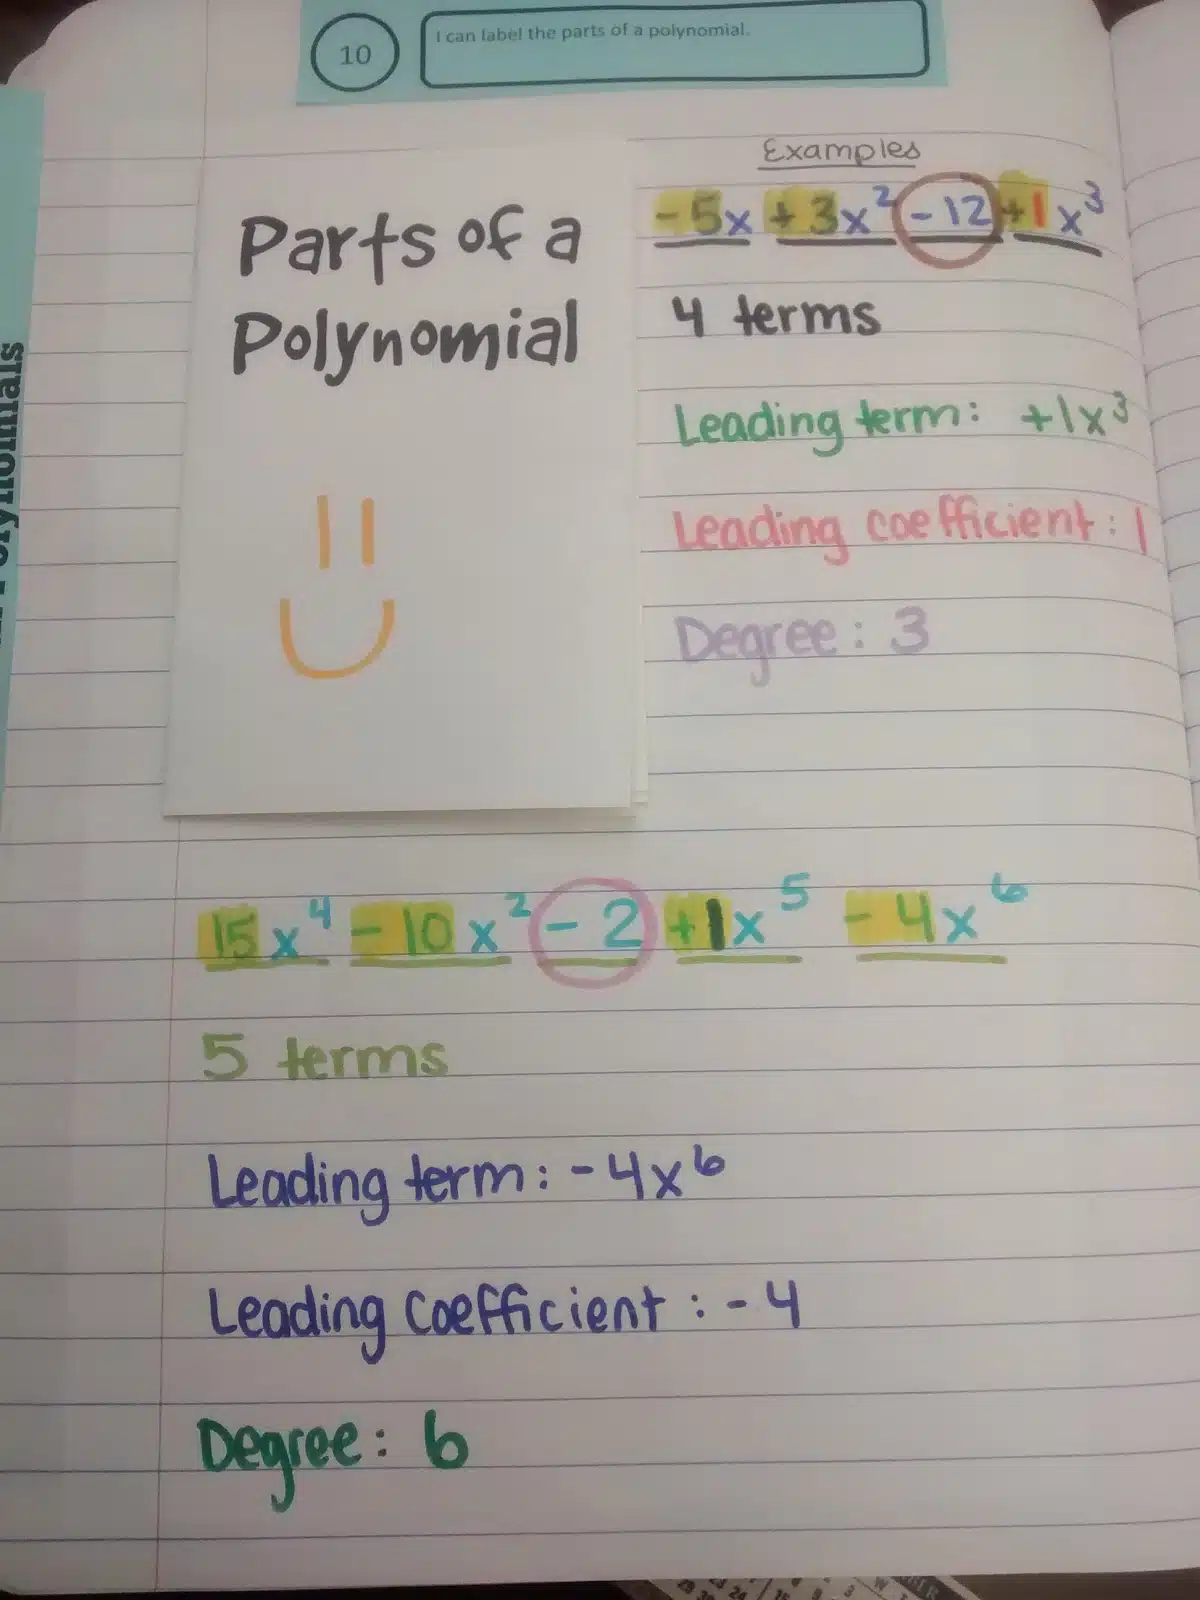 10
I can label the parts of a polynomial.
Parts of a
Polynomial
Examples
-5x +3x² -12 +1x³
4 terms
Leading term: +1x³
Leading coefficient: 1
Degree: 3
15x⁴ -10x² -2 +1x⁵ -4x⁶
5 terms
Leading term: -4x⁶
Leading Coefficient: -4
Degree: 6
Polynomials